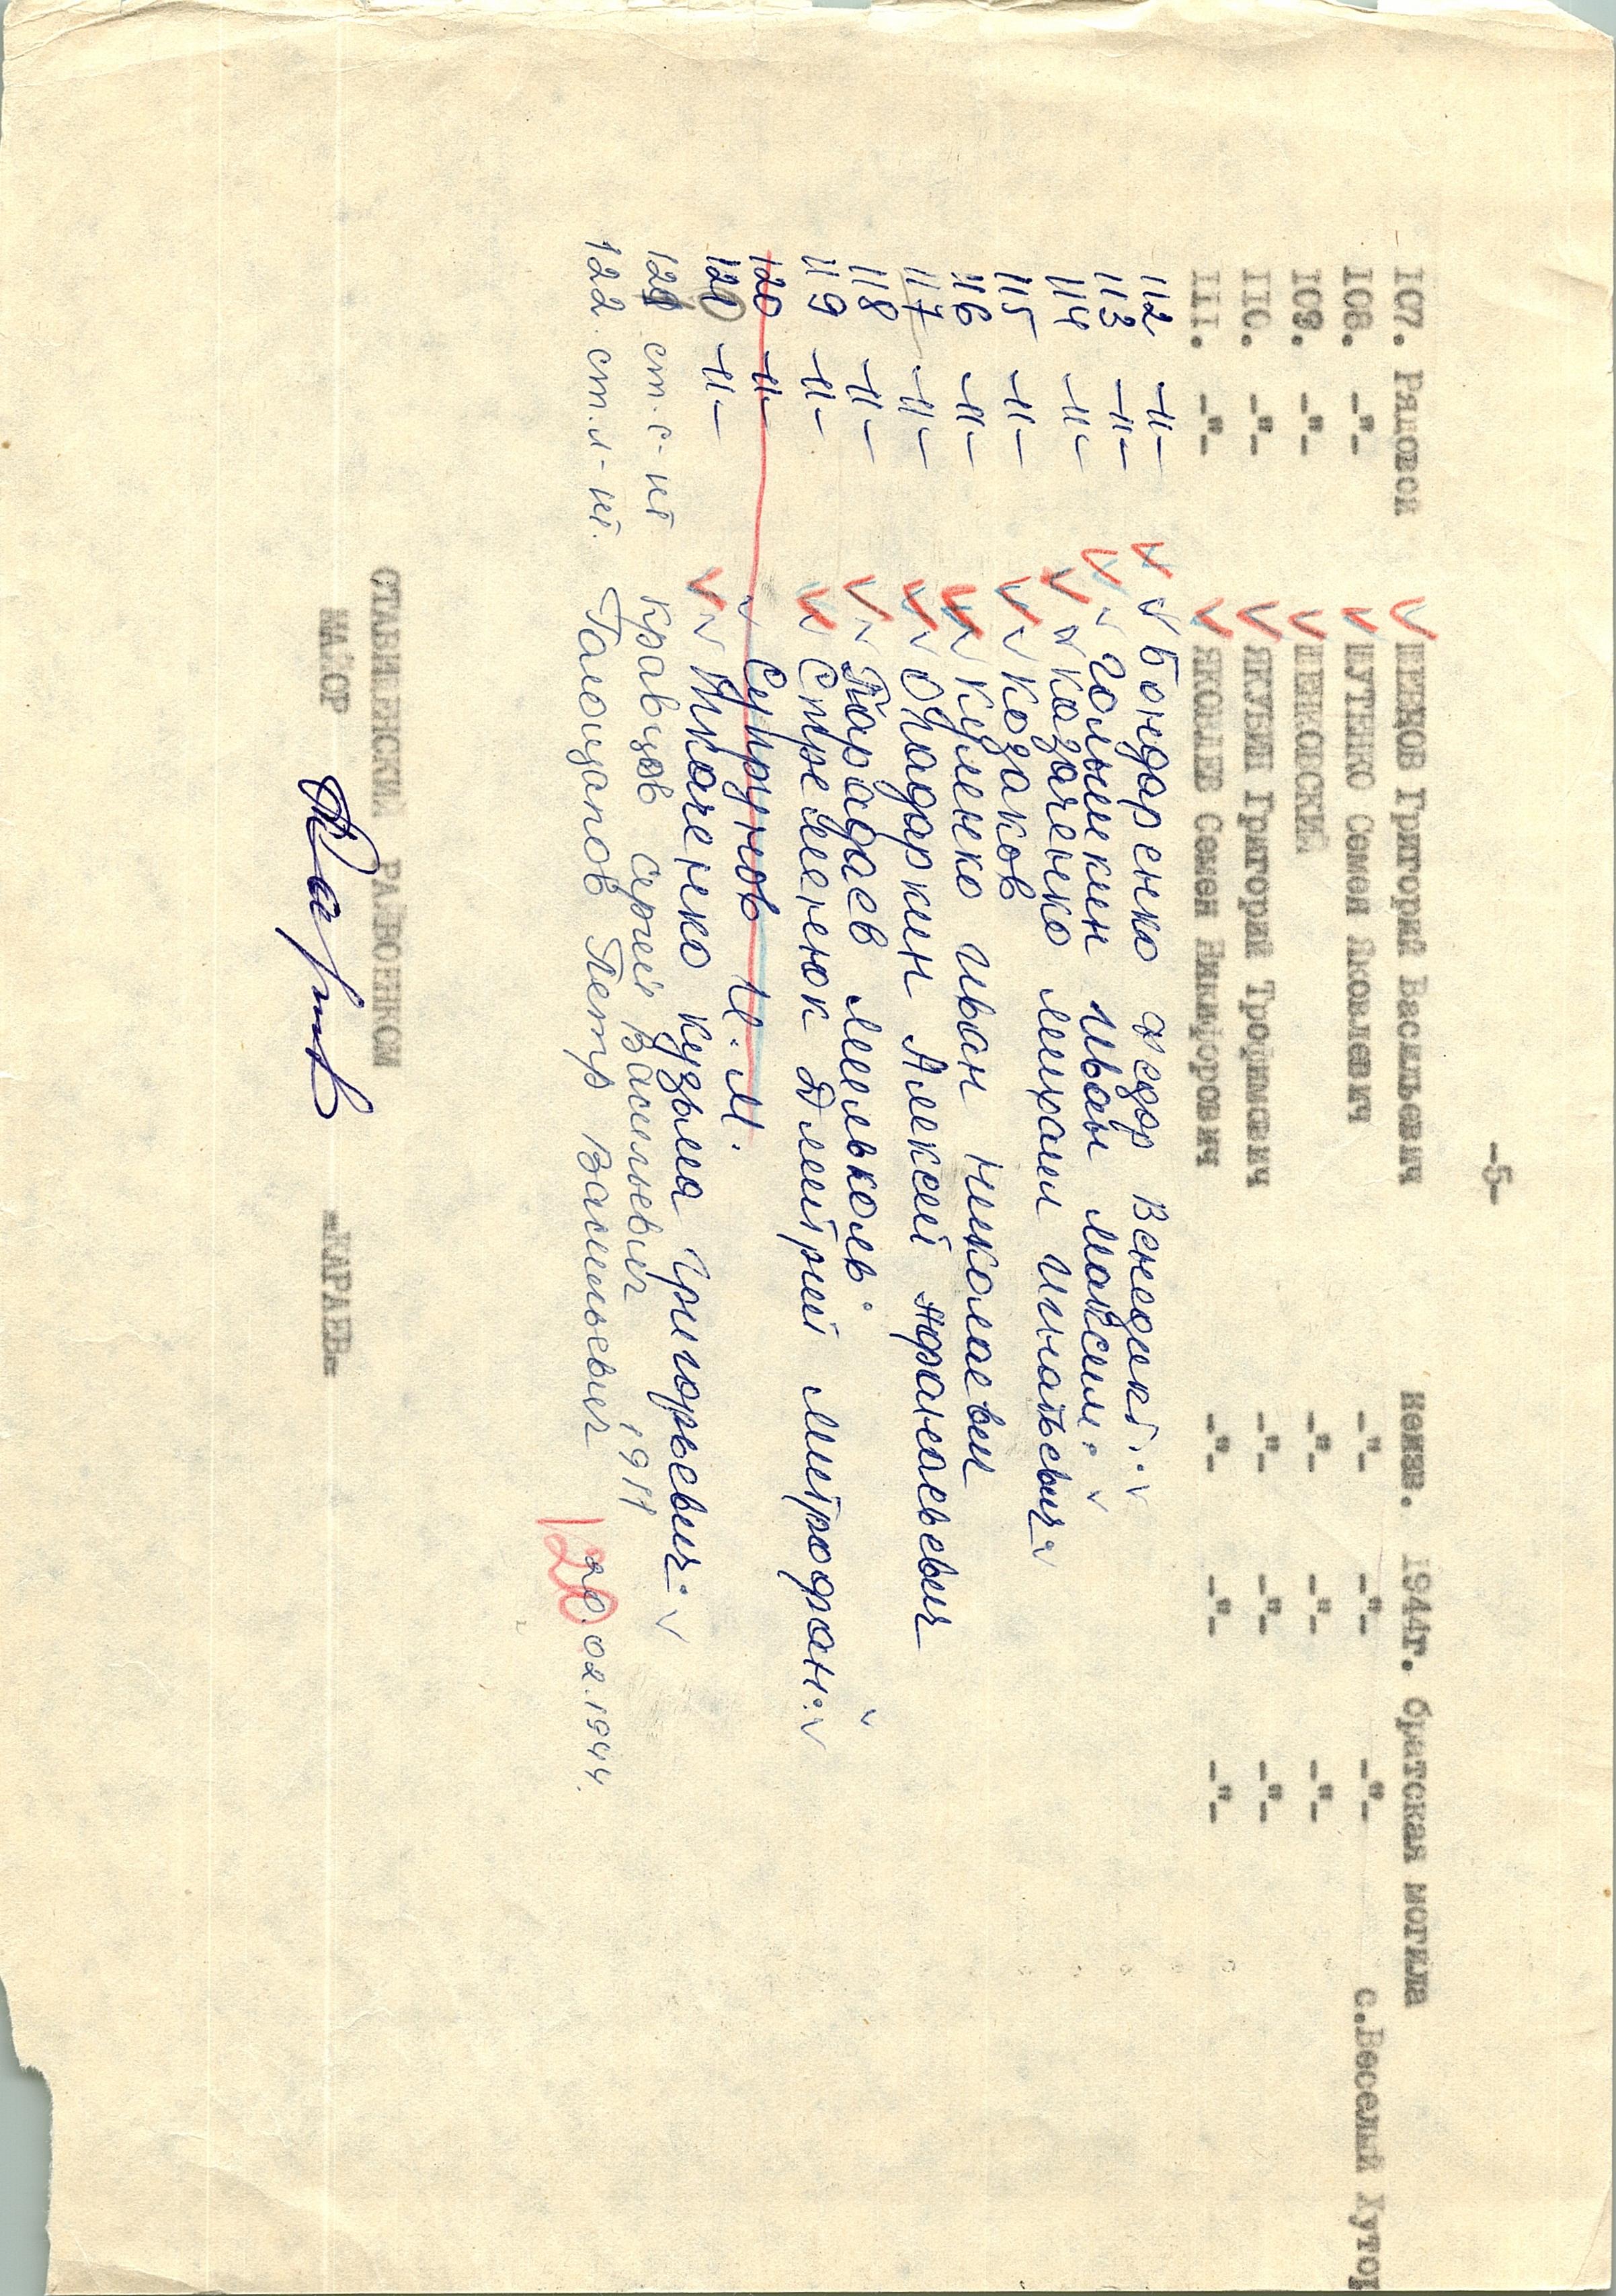 -5-
107. Рядовой ШВЕДОВ Григорий Васильевич неизв. 1944г. братская могила
108. -"- Семен Яковлевич -"- -"- -"- с.Веселый Хутор
109. -"- -"- -"- -"-
110. -"- ЯКУБИН Григорий Трофимович -"- -"- -"-
111. -"- ЯКОВЛЕВ Семен Никифорович -"- -"- -"-
112 -"- Бондаренко Федор Бенедикт.
113 -"- Голышкин Иван Максим.
114 -"- Казаченко Михаил Игнатьевич
115 -"- Козаков
116 -"- Куленко Иван Николаевич
117 -"- Опадаркин Алексей Афанасьевич
118 -"- Парадаев Мелькомь
119 -"- Стрельченок Дмитрий Митрофан.
120 -"- Супрунов И. М.
120 -"- Ткаченко Кузьма Григорьевич
121 ст. с-нт Кравцов Сергей Васильевич 1911
122. ст. л-нт. Галоцапов Петр Васильевич 20.02.1944.
120
СТАВИЩЕНСКИЙ РАЙВОЕНКОМ
МАЙОР -КАРАЕВ-